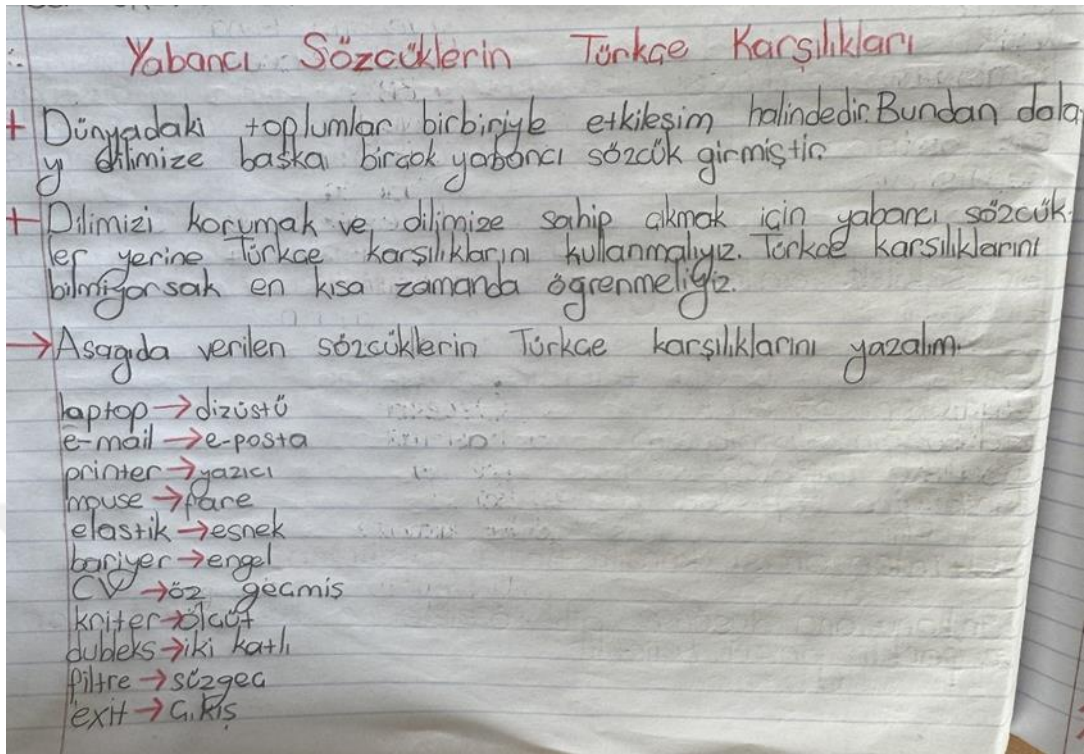 Yabancı Sözcüklerin Türkçe Karşılıkları
+ Dünyadaki toplumlar birbiriyle etkileşim halindedir. Bundan dola
y dilimize başka birçok yabancı sözcük girmiştir.
+ Dilimizi korumak ve dilimize sahip çıkmak için yabancı sözcük-
ler yerine Türkçe karşılıklarını kullanmalıyız. Türkçe karşılıklarını
bilmiyorsak en kısa zamanda öğrenmeliyiz.
→ Aşağıda verilen sözcüklerin Türkçe karşılıklarını yazalım.
laptop → dizüstü
e-mail → e-posta
printer → yazıcı
mouse → fare
elastik → esnek
bariyer → engel
CV → öz geçmiş
kriter → ölçüt
dubleks → iki katlı
filtre → süzgeç
exit → çıkış